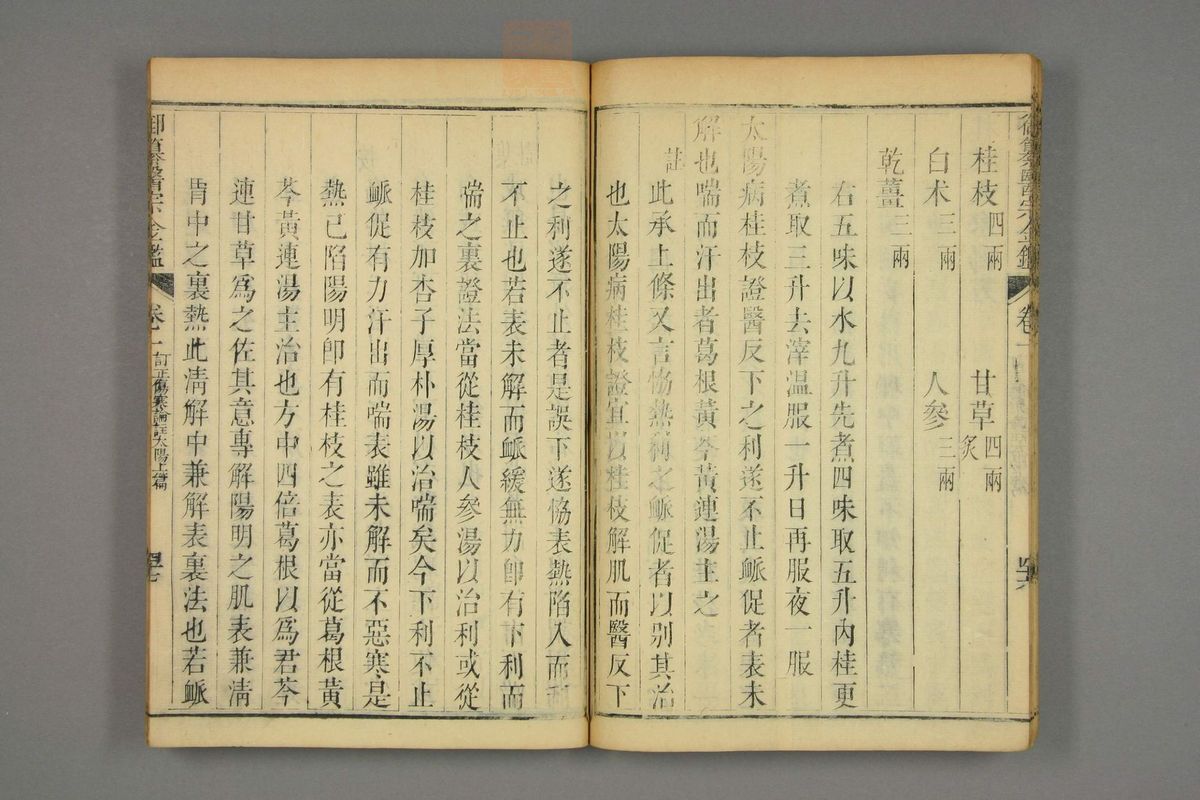 御纂醫宗金鑑 卷一
桂枝四兩 甘草四兩炙
白朮三兩 人參三兩
乾薑三兩
右五味以水九升先煮四味取五升內桂更
煮取三升去滓溫服一升日再服夜一服
太陽病桂枝證醫反下之利遂不止脈促者表未
解也喘而汗出者葛根黃芩黃連湯主之
註
此承上條又言協熱利之脈促者以別其治
也太陽病桂枝證宜以桂枝解肌而醫反下
之利遂不止者是誤下遂協表熱陷入而利
不止也若表未解而脈緩無力卽有下利而
喘之裏證法當從桂枝人參湯以治利或從
桂枝加杏子厚朴湯以治喘矣今下利不止
脈促有力汗出而喘表雖未解而不惡寒是
熱已陷陽明卽有桂枝之表亦當從葛根黃
芩黃連湯主治也方中四倍葛根以爲君芩
連甘草爲之佐其意專解陽明之肌表兼淸
胃中之裏熱此淸解中兼解表裏法也若脈
御纂醫宗金鑑 卷一 訂正傷寒論註太陽上篇